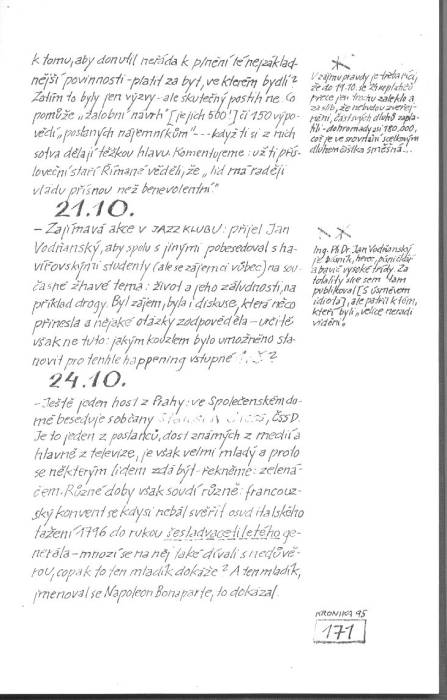 k tomu, aby donutil neřáda k plnění té nejzáklad-
nější povinnosti - platit za byt, ve kterém bydlí?
Zatím to byly jen výzvy - ale skutečný postih ne. Co
pomůže "žalobní návrh" [je jich 600] či 150 výpo-
vědí "poslaných nájemníkům" --- když ti si z nich
sotva dělají těžkou hlavu. Komentujeme: už ti přís-
loveční staří Římané věděli, že "lid má raději
vládu přísnou než benevolentní."
21.10.
- Zajímavá akce v JAZZ KLUBU: přijel Jan
Vodňanský, aby spolu s jinými pobesedoval s ha-
vířovskými studenty (ale se zájemci vůbec) na sou-
časné žhavé téma: život a jeho záludnosti, na
příklad drogy. Byl zájem, byla i diskuse, která něco
přinesla a nějaké otázky zodpověděla - určitě
však ne tuto: jakým kouzlem bylo umožněno sta-
novit pro tenhle happening vstupné
24.10.
- Ještě jeden host z Prahy: ve Společenském do-
mě beseduje s občany ČSSD.
Je to jeden z poslanců, dost známých z medií a
hlavně z televize, je však velmi mladý a proto
se některým lidem zdá být - řekněme: zelená-
čem. Různé doby však soudí různě: francouz-
ský konvent se kdysi nebál svěřit osud italského
tažení 1796 do rukou šestadvacetiletého ge-
nerála - mnozí se na něj také dívali s nedůvě-
rou, copak to ten mladík dokáže? A ten mladík,
jmenoval se Napoleon Bonaparte, to dokázal.
V zájmu pravdy je třeba říci,
že do 19.10. se žhre plátců
přece jen trochu zaleklo a
za slib, že nebudou zveřej-
něni, část svých dluhů zapla-
tili - dohromady asi 180,000,
což je ve srovnání s celkovým
dluhem částka směšná...
Ing. Ph Dr. Jan Vodňanský
je básník, herec,
a bavič vysoké třídy. Za
totality sice sem tam
publikoval [S úsměvem
idiota], ale patřil k těm,
kteří byli "velice neradi
viděni".
KRONIKA 95
171